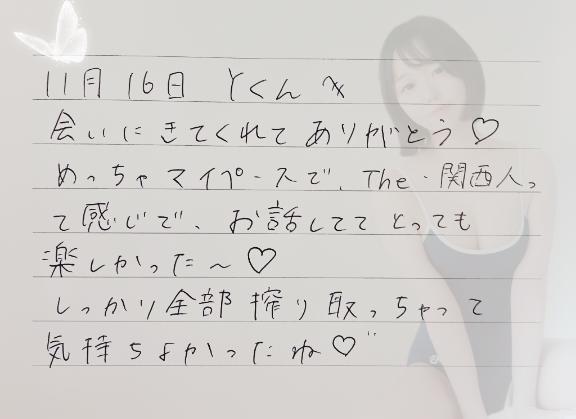 11月16日 Yくんへ
会いにきてくれてありがとう♡
めっちゃマイペースで、The・関西人っ
て感じで、お話しててとっても
楽しかった〜♡
しっかり全部搾り取っちゃって
気持ちよかったね♡